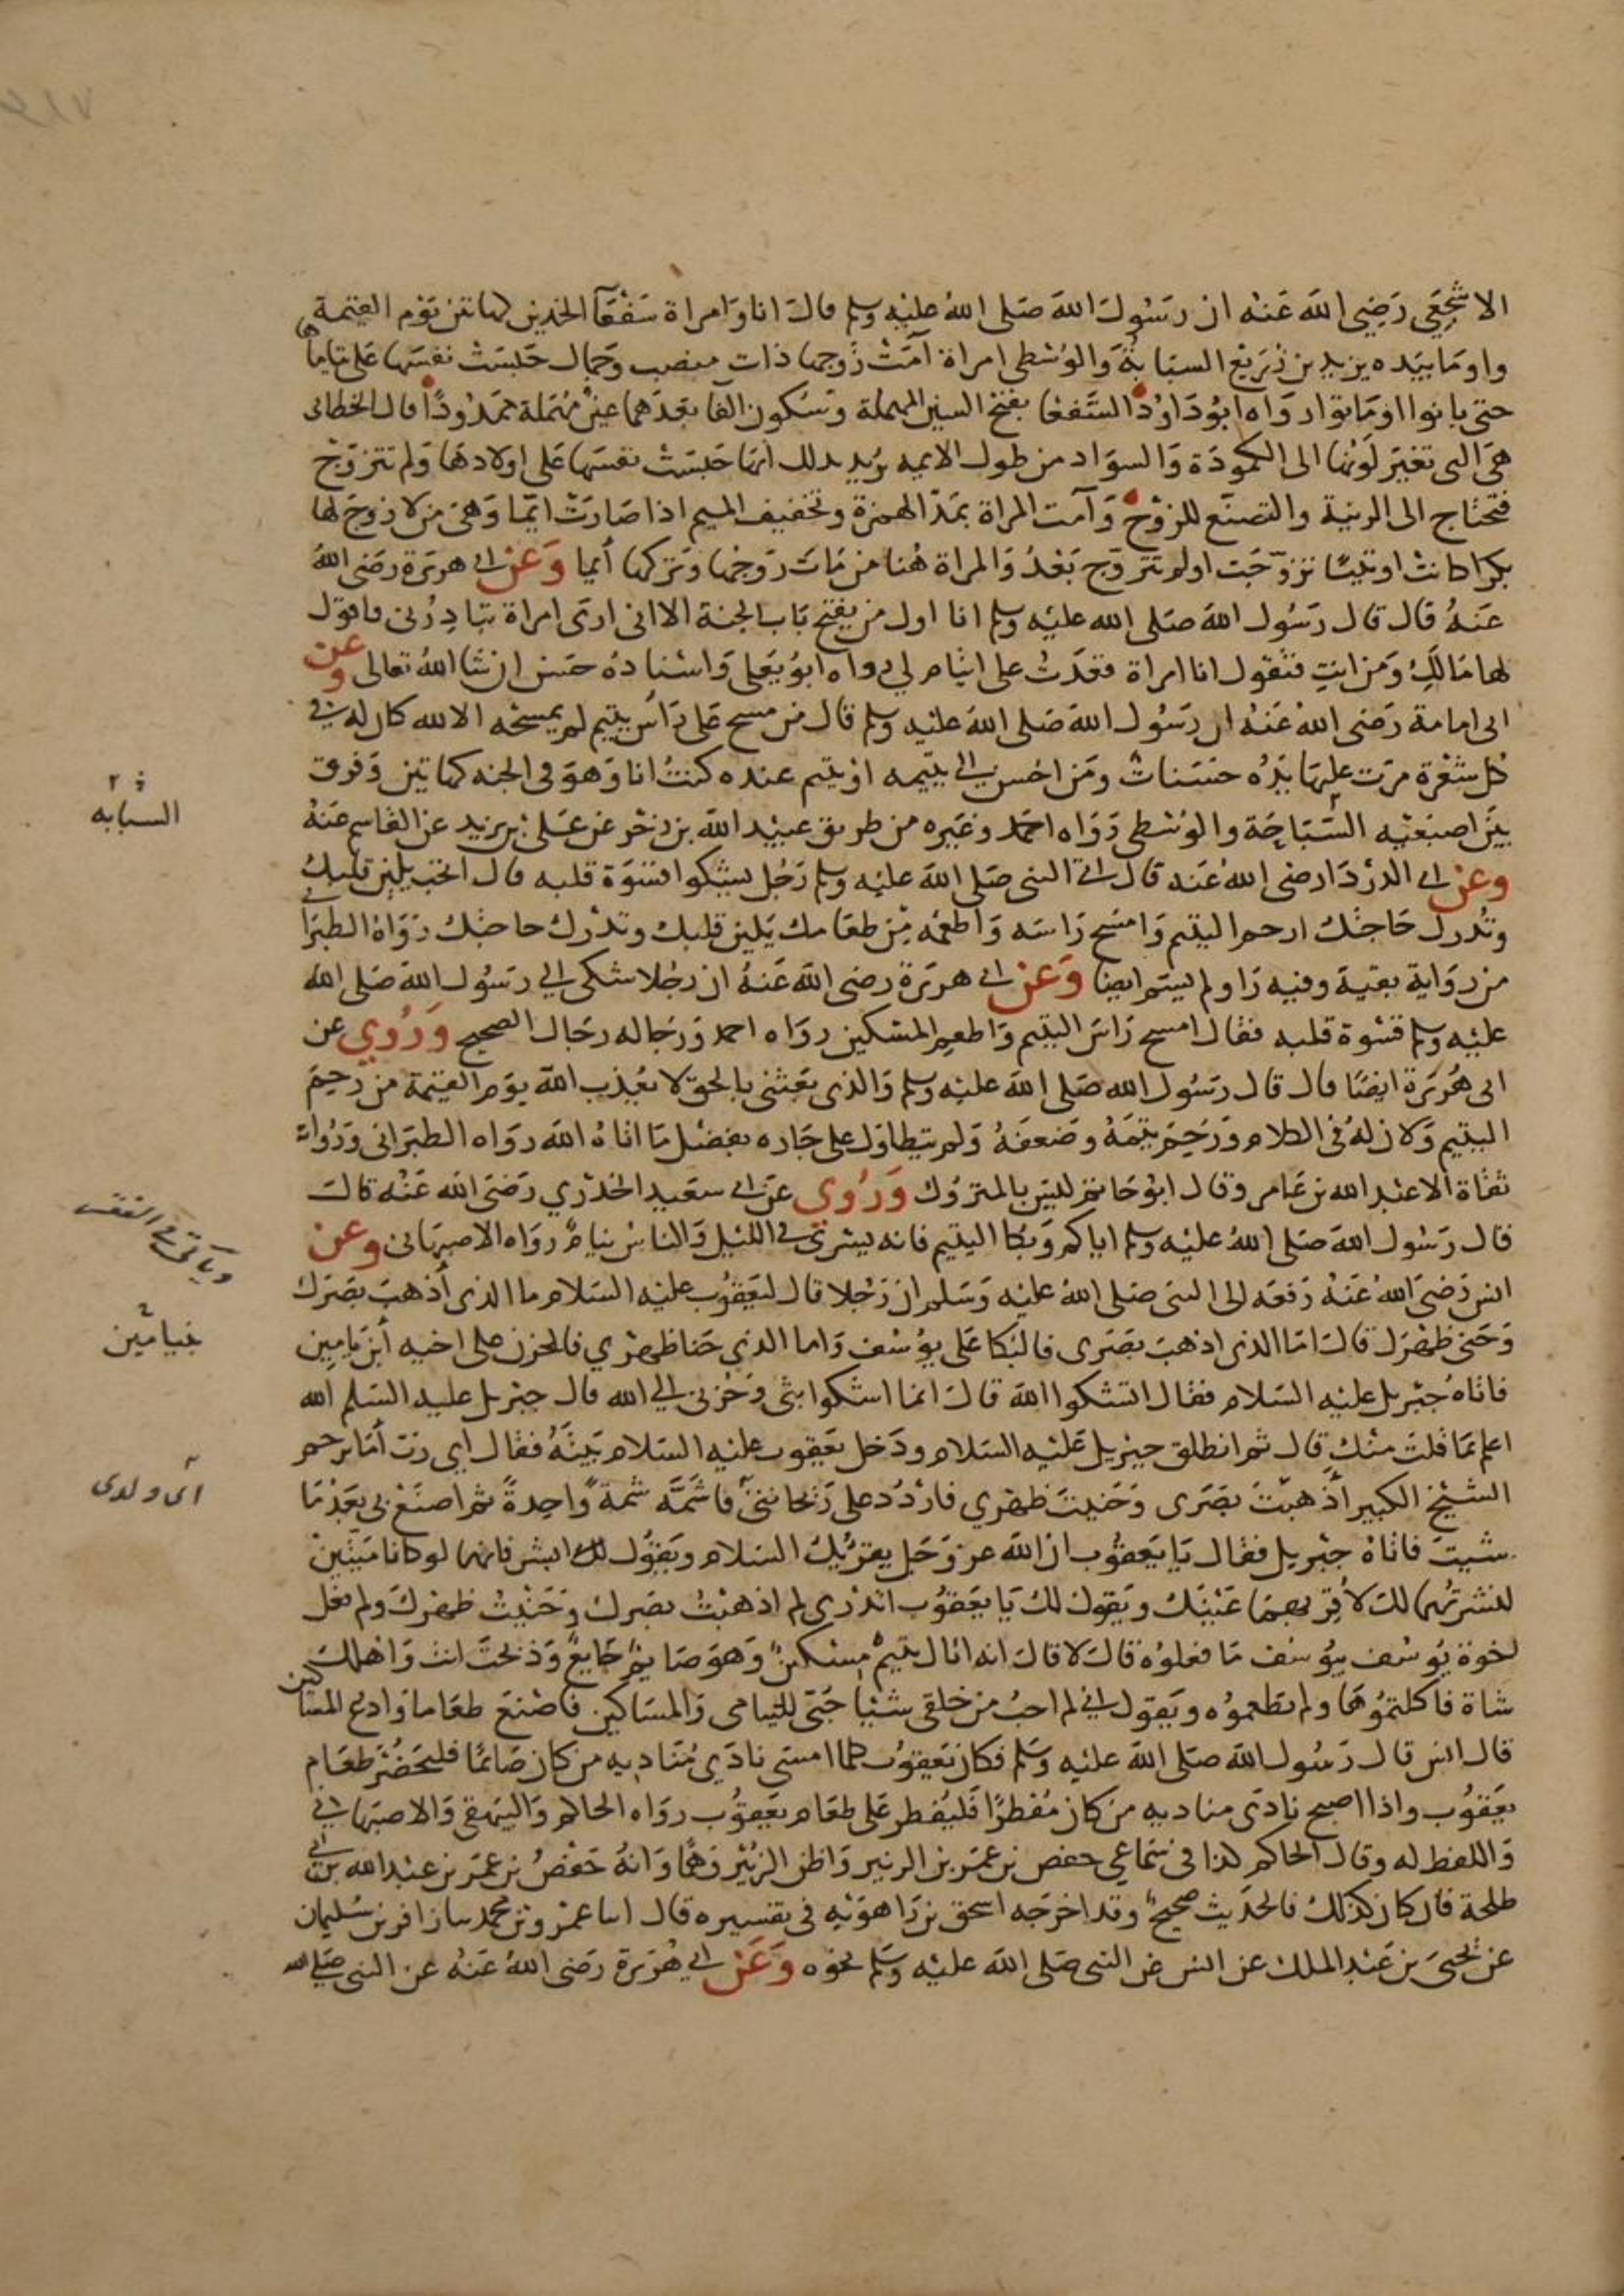 الاشجعي رَضِيَ اللهُ عَنْه ان رسُول الله صَلى اللهُ عليْهِ وسلم قال انا وَامراة سَفْعَآ الخدين كهاتين يَوْم القيٰمة
واومَا بيَده يزيد بن زُرَيع السبَابةَ والوُسْطى امراة آمَتْ زَوجها ذات منصب وجمال حَبسَتْ نفسَها عَلى يتاماها
حتى بانوا اومَاتوا رواه ابُو دَاوُد السَّفعا بفتح السين المهملة وسُكون الفا بعدَهما عينٌ مُهمَلة ممدُودًا قال الخطابى
هيَ التى تغيَر لَونها الى الكمودَة وَالسوَاد من طول الايمه يُريد بذلك انها حَبَسَتْ نفسَها عَلى اولادهَا وَلم تتزوّجْ
فتحتاج الى الزينة والتصنّع للزوْج وَآمت المراة بمَدّ الهمزة وتخفيف الميم اذا صَارَتْ ايّما وَهىَ من لا زوجَ لها
بكرا كانت او ثيبًا تزوّجَت اولم تتزوّج بَعْدُ وَالمراة هُنا من مَاتَ زوجْها وَتركها أيما وَعَنْ ابى هريَرة رَضى اللهُ
عَنهُ قال قال رسُول الله صَلى الله عليْه وسلم انا اول من يفتح بَاب الجنة الا انى ارى امراة تبَادِرُنى فاقول
لها مَا لَكِ وَمن انتِ فتقول انا امراة قعَدتُ على ايتام لى رواه ابوُ يَعلى وَاسْنادهُ حسَن ان شا اللهُ تعالى وعن
ابى امامة رَضى اللهُ عَنهُ ان رَسُول اللهَ صَلى اللهَ عليْه وسلم قال من مسح عَلى رَأس يتيم لم يمسحه الا لله كان له في
كل شعْرة مرَت عليهَا يَدُه حسَنات ومَن احْسن الى يتيمه او يتيم عنده كنتُ انا وَهوَ فى الجنه كهاتين وَفرق
بيَن اصبَعيْه السَبّاحَة والوُسْطى رَوَاه احمَد وغَيره من طريق عبيْد الله بن زحْر عن عَلى بن يزيد عن القاسم عَنهُ
وعَن ابى الدرْدَا رضى اللهُ عَنه قال اتى النبى صَلى اللهَ عليْه وسلم رَجُل يشْكوا قسْوَة قلبه قال اتحب يلين قلبكَ
وتُدرك حَاجتك ارحم اليتيم وَامسَح رَاسَه وَاطعمْه مِن طعَامك يَلين قلبك وتدْرك حاجتك رَوَاهُ الطبرَانى
من روَاية بقيةَ وفيه رَاو لم يسَم ايضا وَعَنْ ابى هريَرة رضى الله عَنهُ ان رَجُلا شكى الى رسُول اللهَ صَلى الله
عليْه وسلم قسْوة قلبه فقال امسَح رَاسَ اليتيم وَاطعمِ المسْكين روَاه احمد وَرجاله رجَال الصحيح وَرُوِي عن
ابى هُرَيرة ايضًا قال قال رسُول الله صَلى اللهَ عليه وسلم وَالذى بعَثنى بالحق لا يعُذِب الله يوَم القيٰمة من رحِمَ
اليتيم وَلان لهُ فى الكلام وَرَحِمَ يتمَهُ وضعفَهُ وَلم يتطاوَل على جَاره بفَضْل مَا اتاهُ الله روَاه الطبَرانى وَرُواته
ثقاة الا عبْد الله بن عَامر وقال ابوُ حَاتم ليسَ بالمترُوك وَرُوي عَن ابى سعَيد الخدْري رَضَى الله عَنه قالَ
قال رَسُول اللهَ صَلى اللهُ عليْه وسلم اياكم وَبُكا اليتيم فانه يسْري فى الليْل والناسُ نيامٌ روَاه الاصبهَانى وعن
انس رَضىَ اللهُ عَنهُ رَفعَه الى النبى صَلى اللهُ عليْه وَسَلم ان رَجُلا قال ليَعقوُب عليْه السَلام ما الذى أَذهبَ بصَرَك
وَحَنى ظهْرَك قالَ امَّا الذى اذهبَ بصَرى فالبُكا عَلى يوُسُف وَاما الذى حَنا ظهْري فالحزن على اخيه أبن يَامِين
فاتاهُ جبْريل عليْه السَلام فقال اتشكوا اللهَ قالَ انما اشكوا بثى وَحُزنى الى الله قال جبْريل عليه السَلم الله
اعلم بمَا قلتَ منْكِ قال ثم انطلق جبْريل عَليْه السَلام ودَخل يَعقوب عليْه السَلام بَيتَهُ فقال اي رَبّ أَمَا ترحم
الشيْخَ الكبير أَذهبْتَ بصَرَى وَحَنيتَ ظهْري فارْدُد على رَيْحَانتىَّ فاشَمَّه شمةً واحِدةً ثم اصنَعْ بى بَعْدُ مَا
شيْتَ فاتاهُ جبْريل فقال يَا يَعقُوب ان اللهَ عز وَجَل يقْرئُكَ السَلام ويَقوُل لكَ ابشر فانهما لو كانا ميّتيْن
لنشرتُهما لكَ لاُقِر بهمَا عَيْنَك ويَقول لكَ يَا يَعقوُب اتدْرى لم اذهبْتُ بصَرك وَحَنيْتُ ظهْركَ ولم فعَل
اخوة يوُسُف بيوُسُف مَا فعلوُه قالَ لا قالَ انه اتاك يتيمٌ مسْكينٌ وَهوَ صَايمٌ جَايعٌ وَذبحْتَ انت وَاهلكَ
شاة فاكلتمُوهَا ولم تطعموُه ويَقول انى لم احبُ من خلقى شيْئا حُبّى لليتامى وَالمسَاكين فاصْنَع طعَاما وَادع المسَاكين
قال انس قال رَسُول اللهَ صَلى اللهَ عليْه وسَلم فكان يَعقوُب كلما امسَى نادَى مُنَاديه من كان صَائمًا فليَحْضُرْ طعَام
يَعقوُب واذا اصبح نادَى مناديه من كان مُفطرًا فَليُفطر عَلى طعَام يَعقوُب روَاه الحاكم وَالبيهقى وَالاصبهَانى
وَاللفظ له وقال الحاكم كذا فى سَمَاعي حفص بن عمَر بن الزبير وَاظن الزبُيْر وَهمًا وَانهُ حَفْصُ بن عمَر بن عبْد الله بن ابى
طلحة فان كان كذلك فالحدَيث صحيحٌ وقد اخرَجَه اسحق بن رَاهوَيْهِ فى تفسيره قال انبا عمْرو بن محمد نا زافر بن سُليمان
عن يَحيىَ بن عَبْد الملك عن انس عن النبى صَلى اللهَ عليْه وسَلم نحوه وَعَنْ ابى هُرَيَرة رَضى اللهُ عَنهُ عن النبى صَلى الله
السبابه
بنيامين
اى ولدى